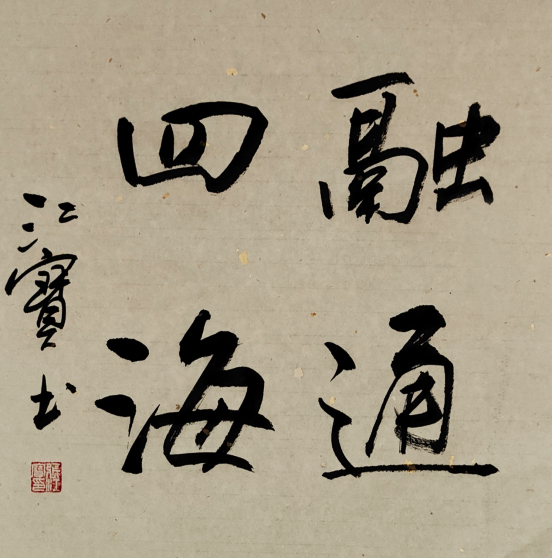 融通
四海
江寶书